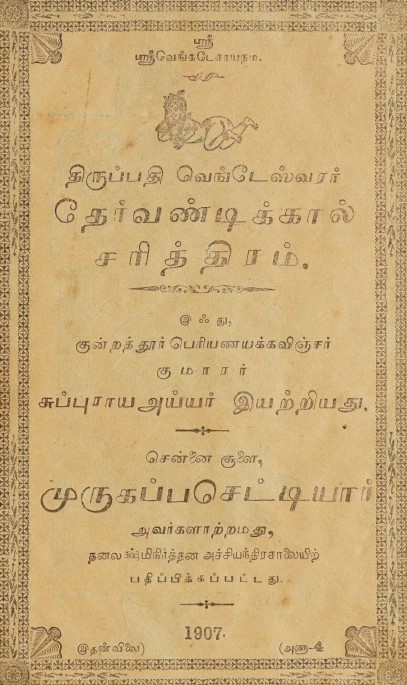 ஸ்ரீ
ஸ்ரீவெங்கடேசாயநம.
திருப்பதி வெங்டேஸ்வரர்
தேர்வண்டிக்கால்
சரித்திரம்.
இஃது,
குன்றத்தூர் பெரியணயக்கவிஞ்சர்
குமாரர்
சுப்புராய அய்யர் இயற்றியது.
சென்னை சூளை,
முருகப்பசெட்டியார்
அவர்களாற்றமது,
தனலக்ஷ்மிநிர்த்தன அச்சியந்திரசாலையிற்
பதிப்பிக்கப்பட்டது.
1907.
(இதன்விலை) (அணா-4